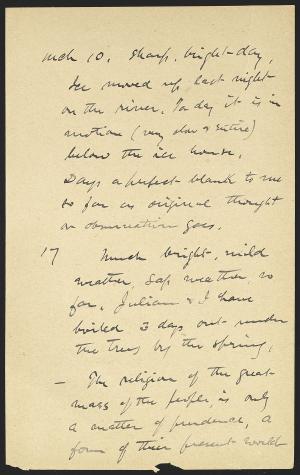 Mch 10. Sharp, bright day,
Ice moved up last night
on the river. To day it is in
motion (very slow & entire)
below the ice house.
Days a perfect blank to me
so far as original thought
or observation goes.
17 Much bright, mild
weather, sap weather so
far. Julian & I have
boiled 3 days out under
the trees by the spring.
— The religion of the great
mass of the people, is only
a matter of prudence, a
form of their present world